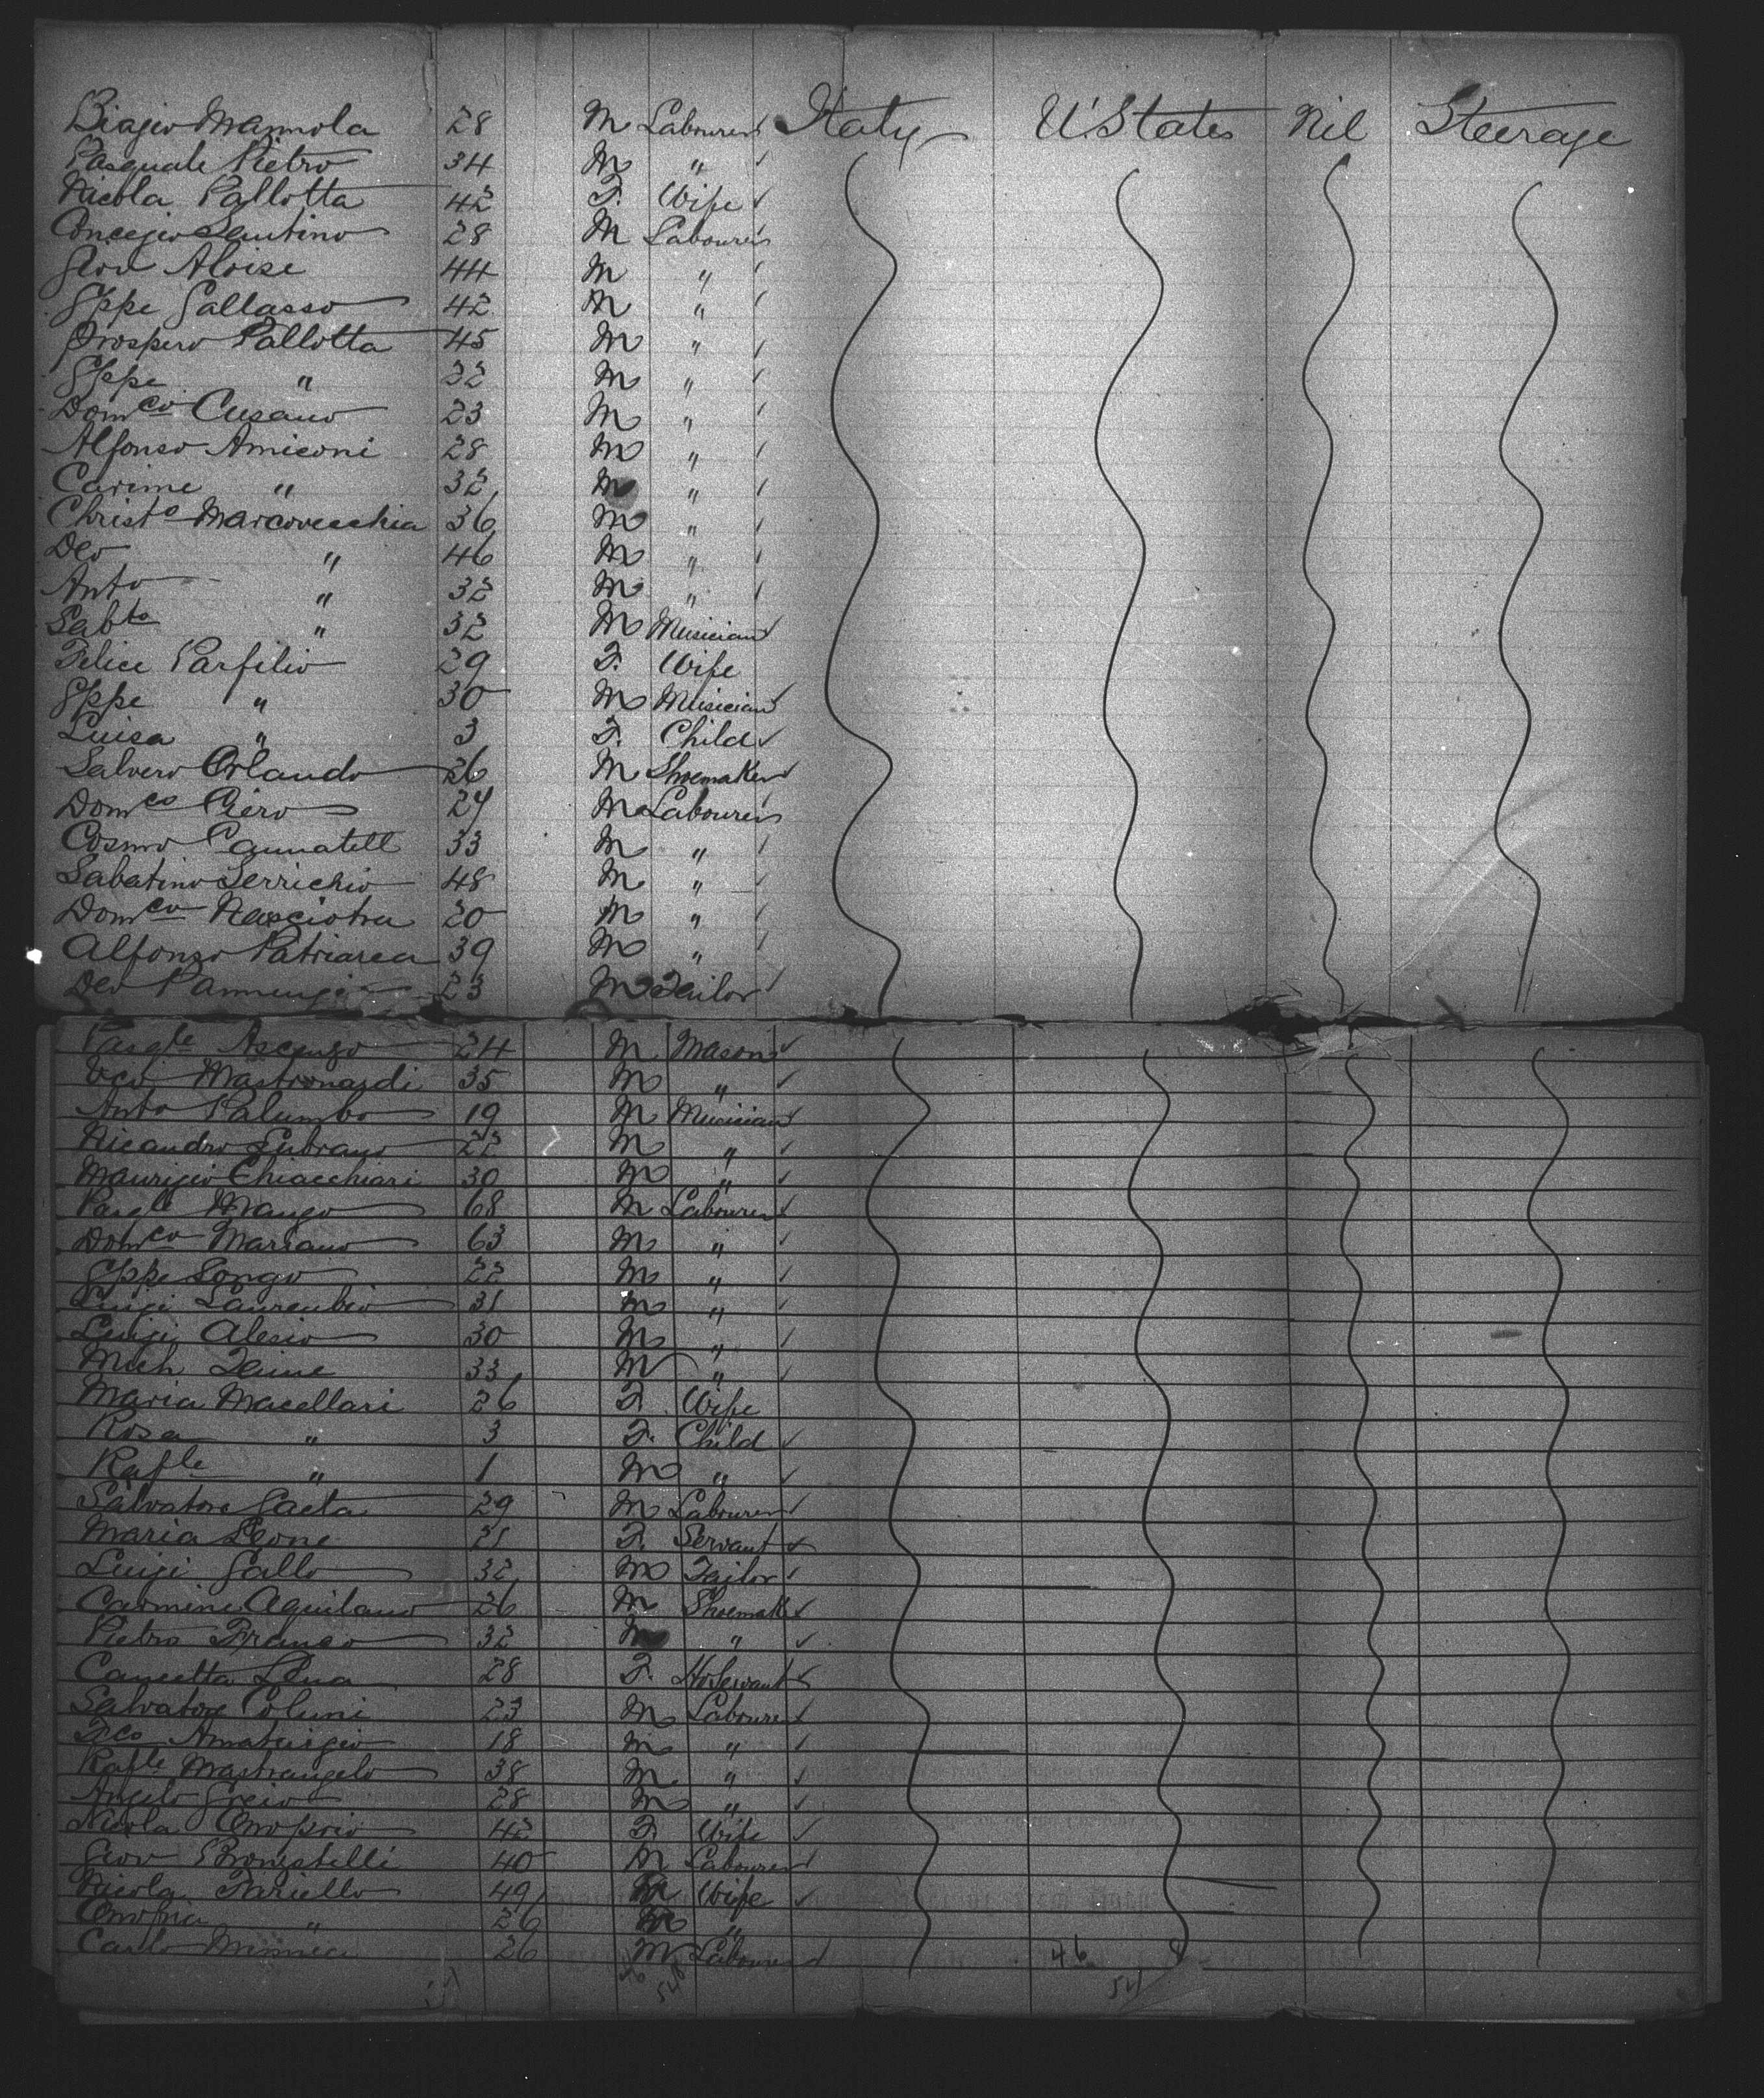 Biagio Mamola 28 M Labourer Italy U States Nil Steerage
Pasquale Pietro 34 M "
Nicola Pallotta 42 F. Wife
28 M Labourer
Giov Aloise 44 M "
Gppe Gallasso 42 M "
Prospero Pallotta 45 M "
Gppe " 22 M "
Domco Cusano 23 M "
Alfonso Amiconi 28 M "
Carime " 32 M "
Christo Marcovecchia 36 M "
Deo " 46 M "
Anto " 32 M "
Sabto " 32 M Musician
Felice Parfilio 29 F. Wife
Gppe " 30 M Musician
Luisa " 3 F. Child
Salvero Orlando 26 M Shoemaker
Domco Piero 24 M Labourer
Cosmo Cannatell 33 M "
Sabatino Serrichio 48 M "
Domco Nasciotra 20 M "
Alfonso Patriarca 39 M "
Deo 23 M Tailor
Pasqle Ascenzo 24 M Mason
Vco Mastronardi 35 M "
Anto Palumbo 19 M Musician
Nicandro Lubrano 22 M "
Maurizio Chiacchiari 30 M "
Pasqle Mango 68 M Labourer
Domco Marrano 63 M "
Gppe Longo 22 M "
Luigi 31 M "
Luigi Alesio 30 M "
Mich 33 M "
Maria Macellari 26 F. Wife
Rosa " 3 F. Child
Rafle " 1 M "
Salvatore Gaeta 29 M Labourer
Maria Leone 21 F. Servant
Luigi Gallo 32 M Tailor
Carmine Aquilano 26 M Shoemak
Pietro Franco 32 M "
Cancetta 28 F. HoServant
Salvatore Coluni 23 M Labourer
Fco 18 M "
Rafle Mastrangelo 38 M "
Angelo Greco 28 M "
Nicola Onoprio 42 F. Wife
Giov 40 M Labourer
Nicola Pariello 49 Wife
Onofria " 26 "
Carlo 26 M Labourer 46
54